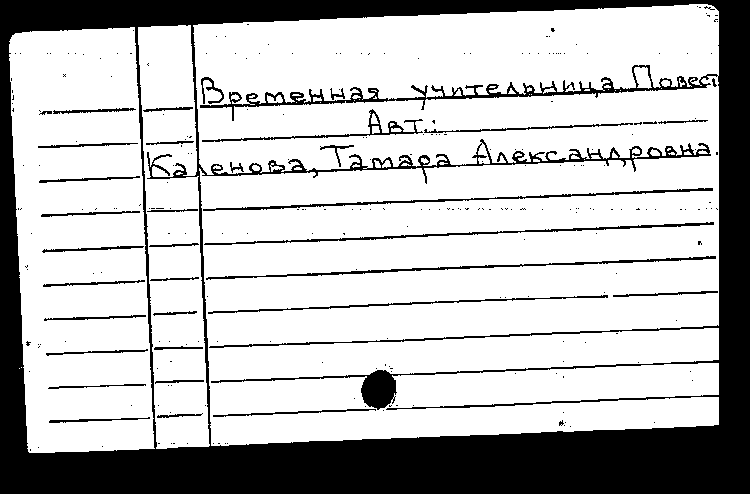 Временная учительница. Повест
Авт.:
Каленова, Тамара Александровна.